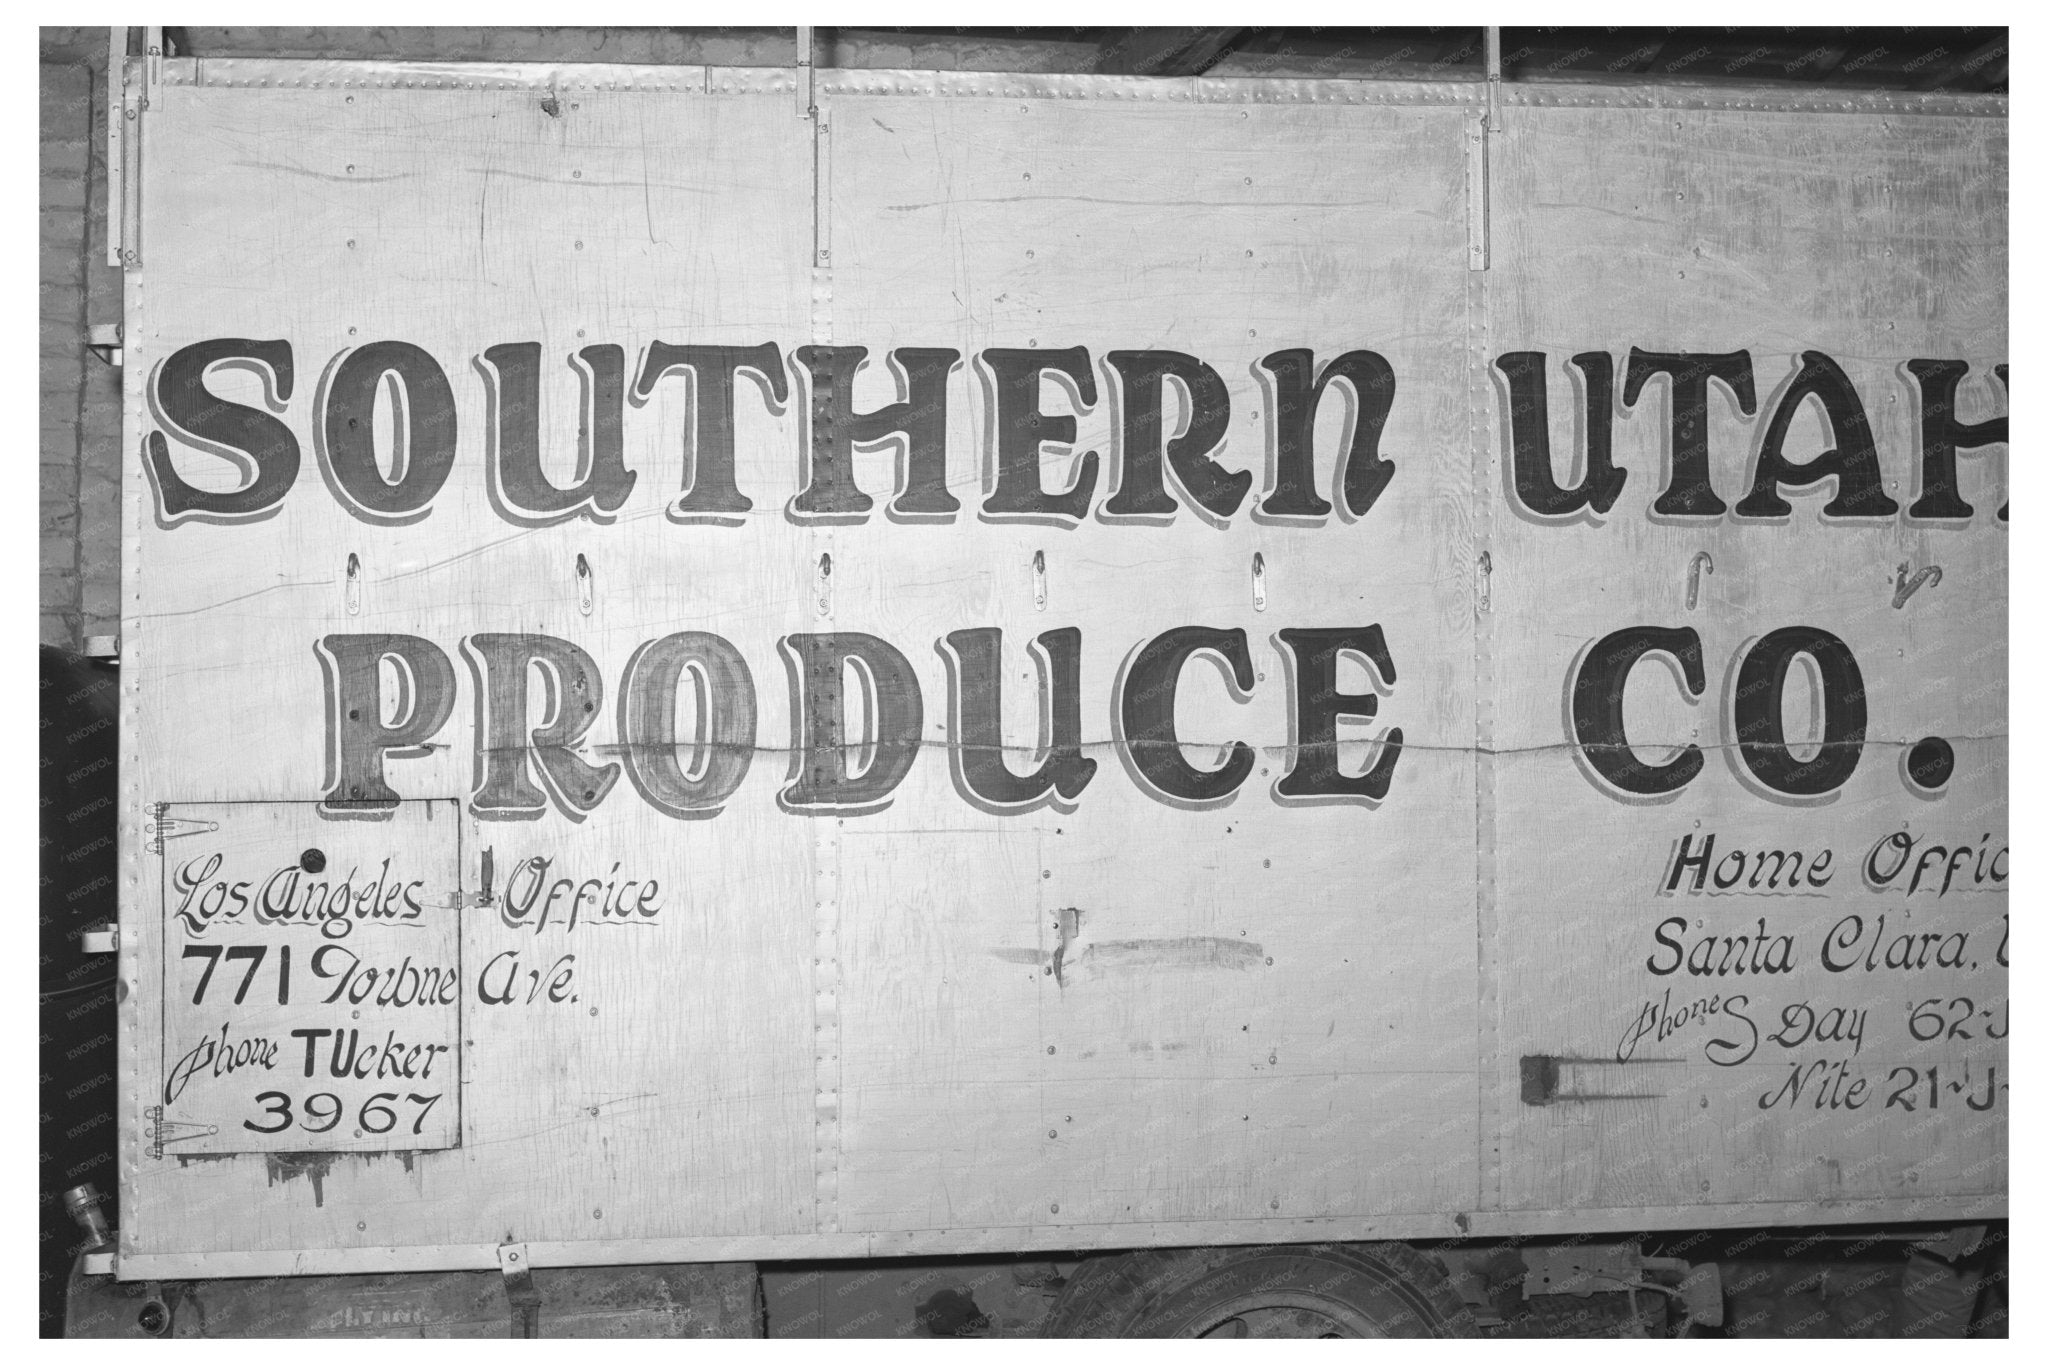 SOUTHERN UTAH
PRODUCE CO.
Los Angeles Office
771 Towne Ave.
Phone TUcker
3967
Home Offic
Santa Clara, U
Phones Day 62-J
Nite 21-J-
KNOWOL